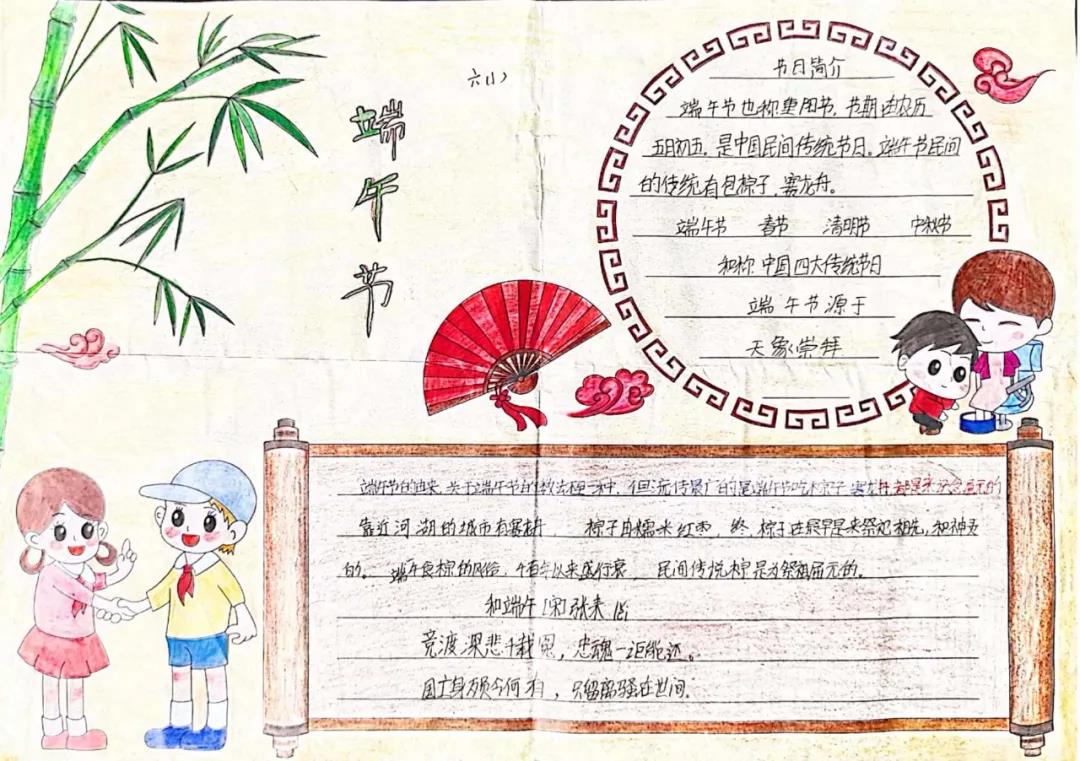 六(1)
端午节
节日简介
端午节也称重阳节,节期在农历
五日初五,是中国民间传统节日。端午节民间
的传统有包粽子,赛龙舟。
端午节 春节 清明节 中秋节
和称中国四大传统节日
端午节源于
天象崇拜
端午节的由来,关于端午节的 种,但流传最广的是端午节吃粽子 赛龙舟 的
靠近河湖的城市有赛 , 粽子由糯米红枣, 粽子在最早是来祭祀祖先,和神灵
的。端午食粽的风俗,千百年以来盛行 民间传说 是为祭祖屈元的。
和端午 [宋]张耒
竞渡深悲千载冤,忠魂一讵能还。
国亡身殒今何有,只留离骚在世间.